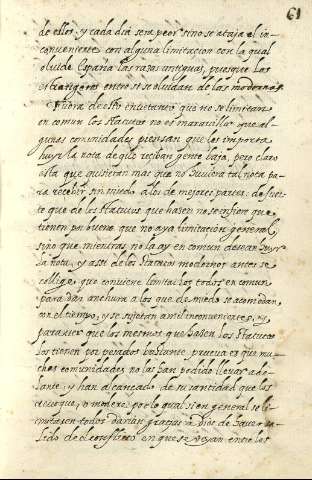 61
de ellos, y cada dia sera peor sino se ataja el in-
conueniente con alguna limitacion con la qual
oluide España las razas antiguas, pues que las
estrangeras entre si se oluidan de las modernas.
Fuera de esto entretanto que no se limitan
en comun los statutos no es marauilla que al-
gunas comunidades piensan que les importa
huyr la nota de que reciban gente baja, pero claro
esta que quisieran mas que no huuiera tal nota pa-
ra recebir sin miedo a los de mejores partes: de suer-
te que de los statutos que hazen no se infiere que
tienen por bueno que no aya limitacion general,
sino que mientras no la ay en comun desean huyr
la nota, y assi de los statutos modernos antes se
collige que conuiene limitar los todos en comun
para dar anchura a los que de miedo se acomodan
con el tiempo, y se sujetan a mil inconuenientes, y
para ver que los mesmos que hazen los statutos
los tienen por pesados bastante prueua es que mu-
chas comunidades no los han podido lleuar ade-
lante, y han alcançado de su santidad que los
reuoque, o modere: por lo qual si en general se li-
mitassen todos darian gracias a Dios de hauer sa-
lido de el conflicto en que se veyan entre las